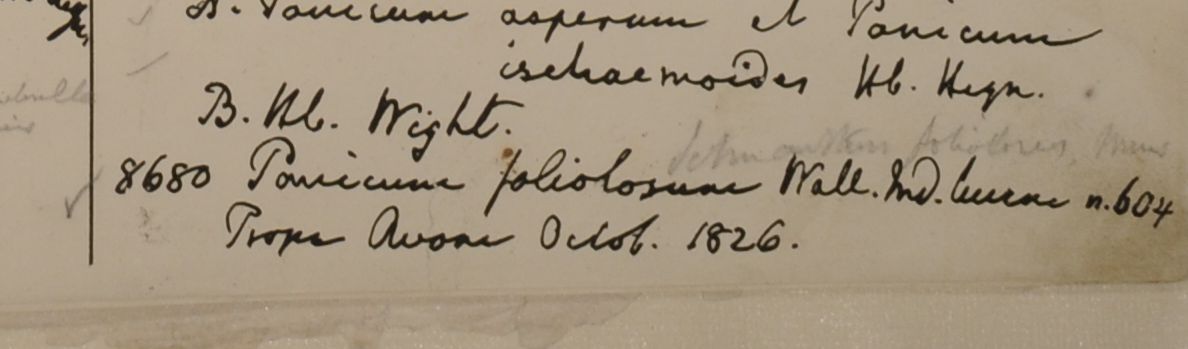 A. Panicum asperum et Panicum
ischaemoides Hb. Heyn.
B. Hb. Wight.
8680 Panicum foliolosum Wall. Ind. cum n. 604
Prope Avam Octob. 1826.